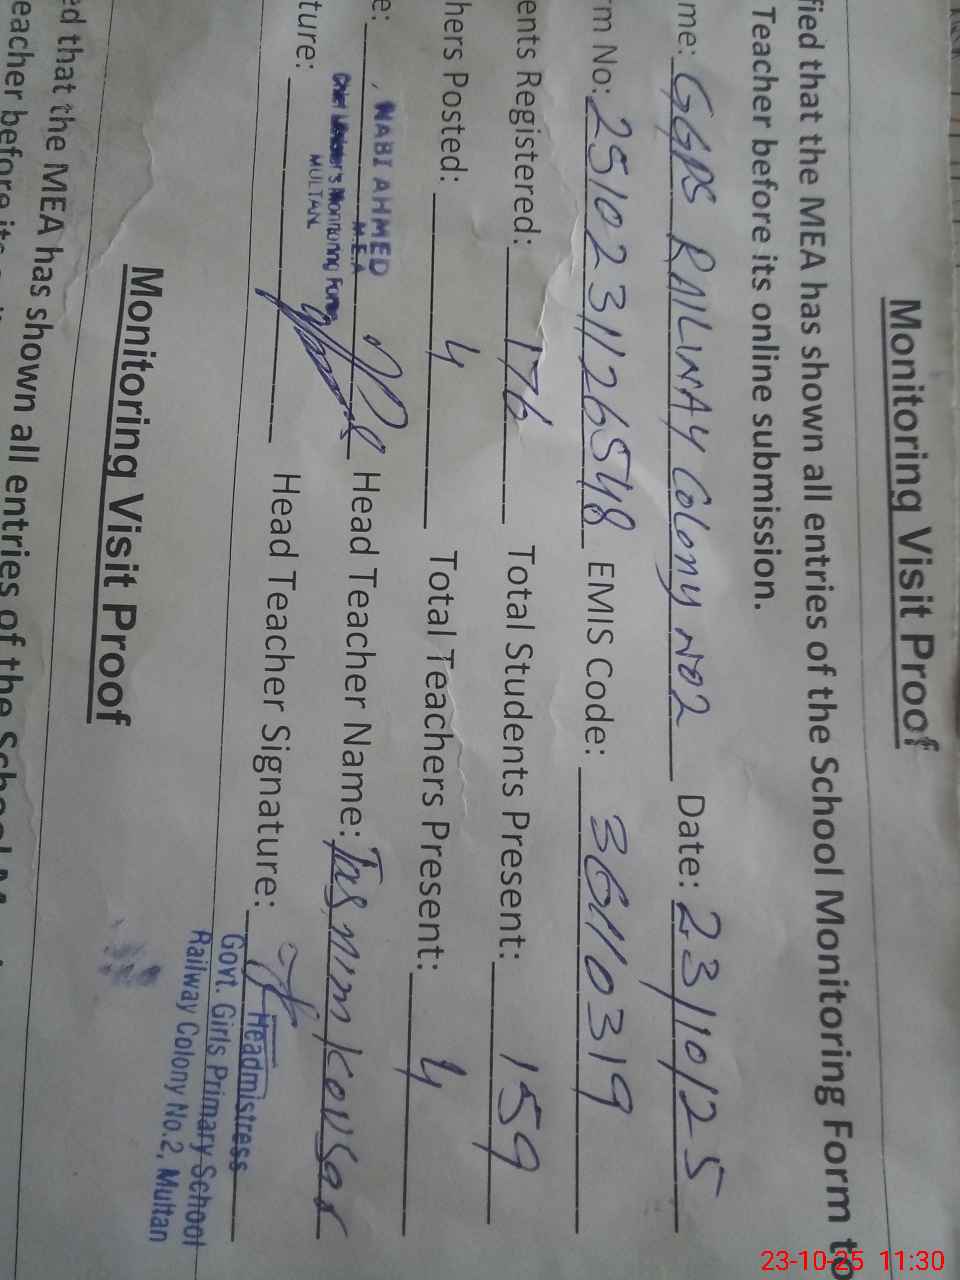 Monitoring Visit Proof
fied that the MEA has shown all entries of the School Monitoring Form to
Teacher before its online submission.
me: GGPS RAILWAY Colony NO2 Date: 23/10/25
rm No: 2510231126548 EMIS Code: 36110319
ents Registered: 176 Total Students Present: 159
hers Posted: 4 Total Teachers Present: 4
e: NABI AHMED Head Teacher Name: Tasnim Kousar
M.E.A
Monitoring Force
MULTAN
ture: Head Teacher Signature:
Headmistress
Govt. Girls Primary School
Railway Colony No.2, Multan
Monitoring Visit Proof
ed that the MEA has shown all entries of the School
eacher before its
23-10-25 11:30